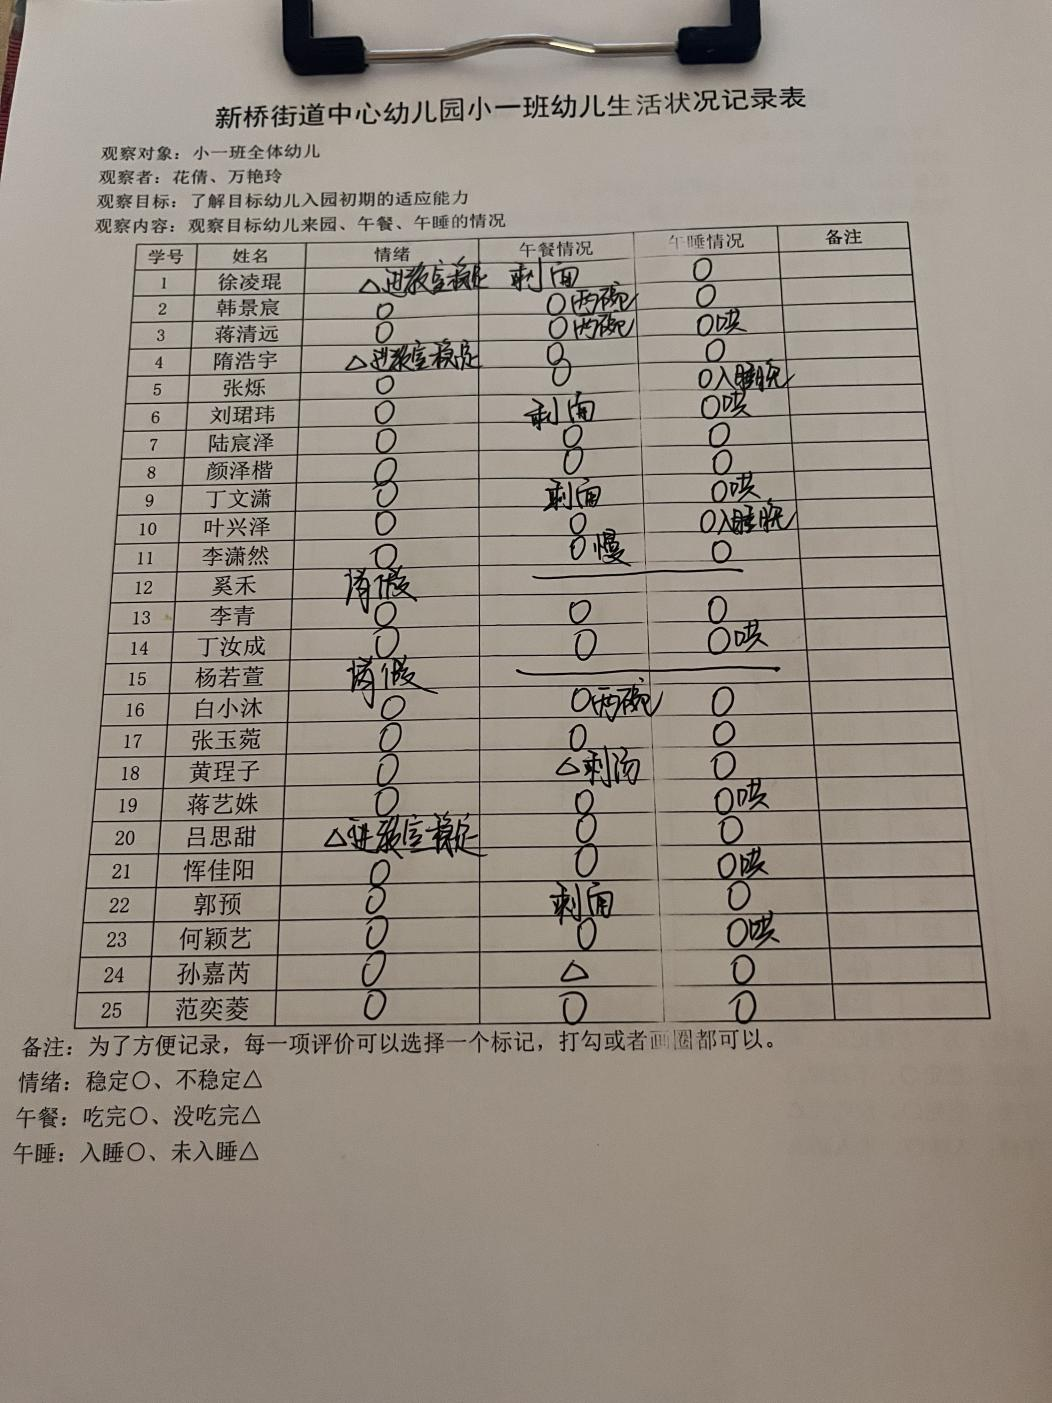 新桥街道中心幼儿园小一班幼儿生活状况记录表
观察对象：小一班全体幼儿
观察者：花倩、万艳玲
观察目标：了解目标幼儿入园初期的适应能力
观察内容：观察目标幼儿来园、午餐、午睡的情况
学号 姓名 情绪 午餐情况 午睡情况 备注
1 徐凌琨 △进教室稳定 剩面 〇
2 韩景宸 〇 〇两碗 〇
3 蒋清远 〇 〇两碗 〇哄
4 隋浩宇 △进教室稳定 〇 〇
5 张烁 〇 〇 〇入睡晚
6 刘珺玮 〇 剩面 〇哄
7 陆宸泽 〇 〇 〇
8 颜泽楷 〇 〇 〇
9 丁文潇 〇 剩面 〇哄
10 叶兴泽 〇 〇 〇入睡晚
11 李潇然 〇 〇慢 〇
12 奚禾 请假
13 李青 〇 〇 〇
14 丁汝成 〇 〇 〇哄
15 杨若萱 请假
16 白小沐 〇 〇两碗 〇
17 张玉菀 〇 〇 〇
18 黄珵子 〇 △剩汤 〇
19 蒋艺姝 〇 〇 〇哄
20 吕思甜 △进教室稳定 〇 〇
21 恽佳阳 〇 〇 〇哄
22 郭预 〇 剩面 〇
23 何颖艺 〇 〇 〇哄
24 孙嘉芮 〇 △ 〇
25 范奕菱 〇 〇 〇
备注：为了方便记录，每一项评价可以选择一个标记，打勾或者画圈都可以。
情绪：稳定〇、不稳定△
午餐：吃完〇、没吃完△
午睡：入睡〇、未入睡△